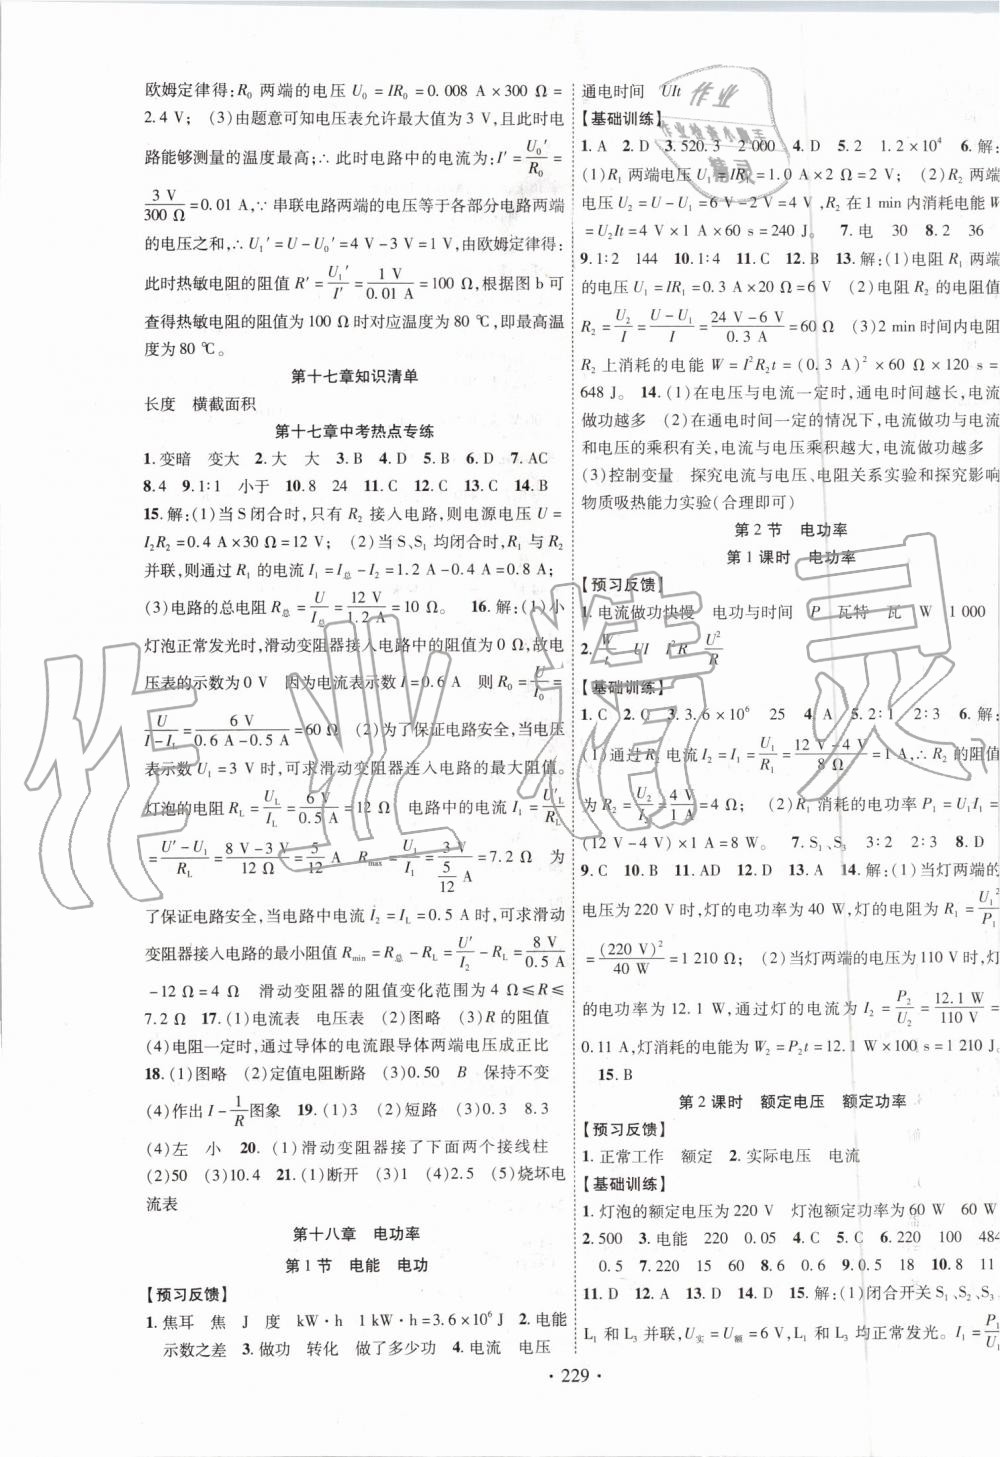 欧姆定律得:R₀ 两端的电压 U₀=IR₀=0.008 A×300 Ω=
2.4 V; (3)由题意可知电压表允许最大值为3 V,此时电
路能够测量的温度最高;∴此时电路中的电流为:I′=U₀′/R₀=
3 V/300 Ω=0.01 A,∵串联电路两端的电压等于各部分电路两端
的电压之和,∴U₁′=U-U₀′=4 V-3 V=1 V,由欧姆定律得:
此时热敏电阻的阻值 R′=U₁′/I′=1 V/0.01 A=100 Ω,根据图 b 可
查得热敏电阻的阻值为 100 Ω时对应温度为 80 ℃,即最高温
度为 80 ℃。
第十七章知识清单
长度 横截面积
第十七章中考热点专练
1.变暗 变大 2.大 大 3.B 4.D 5.D 6.D 7.AC
8.4 9.1∶1 小于 10.8 24 11.C 12.C 13.C 14.B
15.解:(1)当S闭合时,只有 R₂ 接入电路,则电源电压 U=
I₂R₂=0.4 A×30 Ω=12 V; (2)当 S、S₁ 均闭合时,R₁ 与 R₂
并联,则通过 R₁ 的电流 I₁=I总-I₂=1.2 A-0.4 A=0.8 A;
(3)电路的总电阻 R总=U/I总=12 V/1.2 A=10 Ω。 16.解:(1)小
灯泡正常发光时,滑动变阻器接入电路中的阻值为0 Ω,故电
压表的示数为0 V 因为电流表示数 I=0.6 A 则 R₀=U/I₀=
U/(I-I_L)=6 V/(0.6 A-0.5 A)=60 Ω (2)为了保证电路安全,当电压
表示数 U₁=3 V时,可求滑动变阻器连入电路的最大阻值。
灯泡的电阻 R_L=U_L/I_L=6 V/0.5 A=12 Ω 电路中的电流 I₁=U′_L/R_L
=(U′-U₁)/R_L=(8 V-3 V)/12 Ω=5/12 A R_max=U₁/I₁=3 V/(5/12 A)=7.2 Ω 为
了保证电路安全,当电路中电流 I₂=I_L=0.5 A时,可求滑动
变阻器接入电路的最小阻值 R_min=R总-R_L=U′/I₂-R_L=8 V/0.5 A
-12 Ω=4 Ω 滑动变阻器的阻值变化范围为4 Ω≤R≤
7.2 Ω 17.(1)电流表 电压表 (2)图略 (3)R的阻值
(4)电阻一定时,通过导体的电流跟导体两端电压成正比
18.(1)图略 (2)定值电阻断路 (3)0.50 B 保持不变
(4)作出 I-1/R图象 19.(1)3 (2)短路 (3)0.3 8.3
(4)左 小 20.(1)滑动变阻器接了下面两个接线柱
(2)50 (3)10.4 21.(1)断开 (3)1 (4)2.5 (5)烧坏电
流表
第十八章 电功率
第1节 电能 电功
【预习反馈】
1.焦耳 焦 J 度 kW·h 1 kW·h=3.6×10⁶ J 2.电能
示数之差 3.做功 转化 做了多少功 4.电流 电压
通电时间 UIt
【基础训练】
1.A 2.D 3.520.3 2 000 4.D 5.2 1.2×10⁴ 6.解:
(1)R₁ 两端电压U₁=IR₁=1.0 A×2 Ω=2 V; (2)R₂ 两端
电压 U₂=U-U₁=6 V-2 V=4 V,R₂ 在1 min内消耗电能 W
=U₂It=4 V×1 A×60 s=240 J。 7.电 30 8.2 36
9.1∶2 144 10.1∶4 11.C 12.B 13.解:(1)电阻 R₁ 两端
的电压 U₁=IR₁=0.3 A×20 Ω=6 V (2)电阻 R₂ 的电阻值
R₂=U₂/I=(U-U₁)/I=(24 V-6 V)/0.3 A=60 Ω (3)2 min时间内电阻
R₂ 上消耗的电能 W=I²R₂t=(0.3 A)²×60 Ω×120 s=
648 J。 14.(1)在电压与电流一定时,通电时间越长,电流
做功越多 (2)在通电时间一定的情况下,电流做功与电流
和电压的乘积有关,电流与电压的乘积越大,电流做功越多
(3)控制变量 探究电流与电压、电阻关系实验和探究影响
物质吸热能力实验(合理即可)
第2节 电功率
第1课时 电功率
【预习反馈】
1.电流做功快慢 电功与时间 P 瓦特 瓦 W 1 000
2.W/t UI I²R U²/R
【基础训练】
1.C 2.C 3.3.6×10⁶ 25 4.A 5.2∶1 2∶3 6.解:
(1)通过 R₂ 电流 I₂=I₁=U₁/R₁=(12 V-4 V)/8 Ω=1 A,∴R₂ 的阻值
为 R₂=U₂/I₂=4 V/1 A=4 Ω; (2)R₁ 消耗的电功率 P₁=U₁I₁=
(12 V-4 V)×1 A=8 W。 7.S₁、S₃ 3∶2 2∶3 8.D
9.C 10.B 11.AD 12.D 13.A 14.解:(1)当灯两端的
电压为220 V时,灯的电功率为40 W,灯的电阻为 R₁=U₁²/P₁
=(220 V)²/40 W=1 210 Ω; (2)当灯两端的电压为110 V时,灯
的电功率为 12.1 W,通过灯的电流为 I₂=P₂/U₂=12.1 W/110 V=
0.11 A,灯消耗的电能为 W₂=P₂t=12.1 W×100 s=1 210 J。
15.B
第2课时 额定电压 额定功率
【预习反馈】
1.正常工作 额定 2.实际电压 电流
【基础训练】
1.灯泡的额定电压为220 V 灯泡额定功率为60 W 60 W
2.500 3.电能 220 0.05 4.C 5.C 6.220 100 484
0.5 7.220 15 60 8.6 6 9.0.02 18 10.8 11
11.D 12.A 13.D 14.D 15.解:(1)闭合开关 S₁、S₂、S₃
L₁ 和 L₃ 并联,U实=U额=6 V,L₁ 和 L₃ 均正常发光。I₁=P₁
· 229 ·
作业精灵
作业
作业检查小助手
精灵